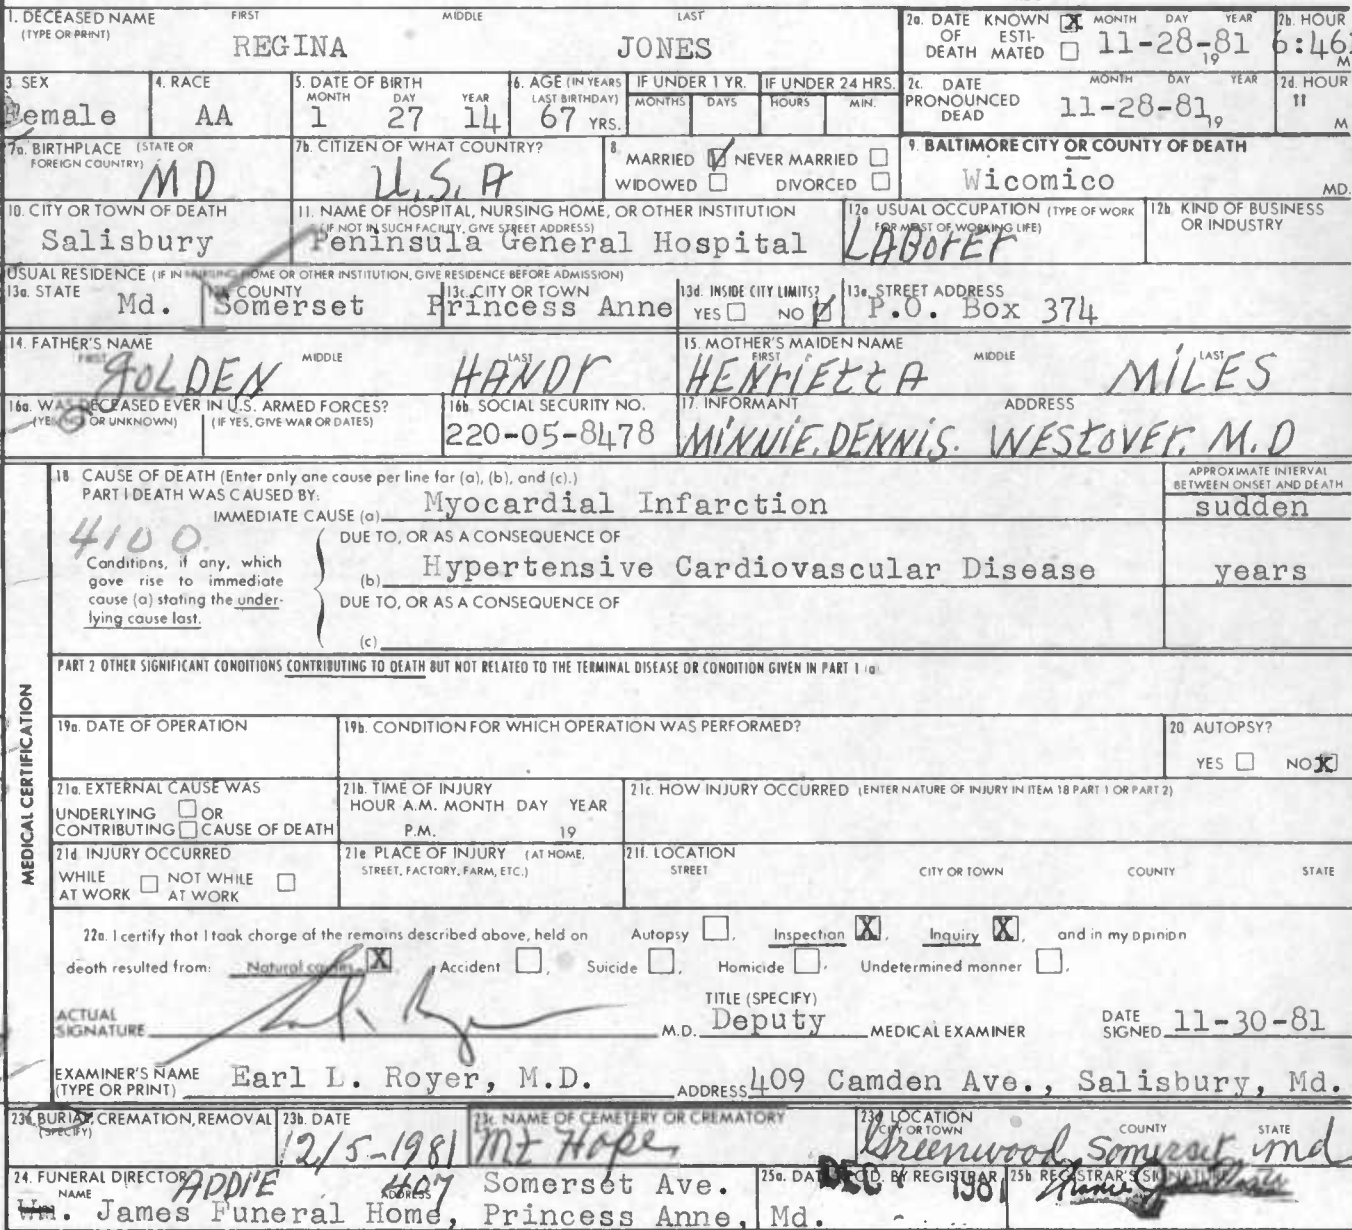 1. DECEASED NAME FIRST MIDDLE LAST
(TYPE OR PRINT)
REGINA JONES
2a. DATE KNOWN X MONTH DAY YEAR
OF ESTI-
DEATH MATED 11-28-81 19
2b. HOUR
6:46 M
3. SEX
Female
4. RACE
AA
5. DATE OF BIRTH
MONTH DAY YEAR
1 27 14
6. AGE (IN YEARS
LAST BIRTHDAY)
67 YRS.
IF UNDER 1 YR.
MONTHS DAYS
IF UNDER 24 HRS.
HOURS MIN.
2c. DATE MONTH DAY YEAR
PRONOUNCED
DEAD 11-28-81 19
2d. HOUR
" M
7a. BIRTHPLACE (STATE OR
FOREIGN COUNTRY)
MD
7b. CITIZEN OF WHAT COUNTRY?
U.S.A
8. MARRIED ✓ NEVER MARRIED
WIDOWED DIVORCED
9. BALTIMORE CITY OR COUNTY OF DEATH
Wicomico MD.
10. CITY OR TOWN OF DEATH
Salisbury
11. NAME OF HOSPITAL, NURSING HOME, OR OTHER INSTITUTION
(IF NOT IN SUCH FACILITY, GIVE STREET ADDRESS)
Peninsula General Hospital
12a USUAL OCCUPATION (TYPE OF WORK
FOR MOST OF WORKING LIFE)
LABorEr
12b. KIND OF BUSINESS
OR INDUSTRY
USUAL RESIDENCE (IF IN NURSING HOME OR OTHER INSTITUTION, GIVE RESIDENCE BEFORE ADMISSION)
13a. STATE
Md.
COUNTY
Somerset
13c. CITY OR TOWN
Princess Anne
13d. INSIDE CITY LIMITS?
YES NO ✓
13e. STREET ADDRESS
P.O. Box 374
14. FATHER'S NAME
FIRST MIDDLE LAST
GOLDEN HANDY
15. MOTHER'S MAIDEN NAME
FIRST MIDDLE LAST
HENriEttA MiLES
16a. WAS DECEASED EVER IN U.S. ARMED FORCES?
(YES, NO OR UNKNOWN) (IF YES, GIVE WAR OR DATES)
16b. SOCIAL SECURITY NO.
220-05-8478
17. INFORMANT ADDRESS
MiNNiE. DENNiS. WEStOVEr. M.D
18 CAUSE OF DEATH (Enter only one cause per line for (a), (b), and (c).)
PART I DEATH WAS CAUSED BY:
IMMEDIATE CAUSE (a) Myocardial Infarction
APPROXIMATE INTERVAL
BETWEEN ONSET AND DEATH
sudden
4100
Conditions, if any, which
gave rise to immediate
cause (a) stating the under-
lying cause last.
DUE TO, OR AS A CONSEQUENCE OF
(b) Hypertensive Cardiovascular Disease years
DUE TO, OR AS A CONSEQUENCE OF
(c)
PART 2 OTHER SIGNIFICANT CONDITIONS CONTRIBUTING TO DEATH BUT NOT RELATED TO THE TERMINAL DISEASE OR CONDITION GIVEN IN PART 1 (a)
MEDICAL CERTIFICATION
19a. DATE OF OPERATION
19b. CONDITION FOR WHICH OPERATION WAS PERFORMED?
20. AUTOPSY?
YES NO X
21a. EXTERNAL CAUSE WAS
UNDERLYING OR
CONTRIBUTING CAUSE OF DEATH
21b. TIME OF INJURY
HOUR A.M. MONTH DAY YEAR
P.M. 19
21c. HOW INJURY OCCURRED (ENTER NATURE OF INJURY IN ITEM 18 PART 1 OR PART 2)
21d INJURY OCCURRED
WHILE NOT WHILE
AT WORK AT WORK
21e PLACE OF INJURY (AT HOME,
STREET, FACTORY, FARM, ETC.)
21f. LOCATION
STREET CITY OR TOWN COUNTY STATE
22a. I certify that I took charge of the remains described above, held on Autopsy , Inspection X, Inquiry X, and in my opinion
death resulted from: Natural causes X, Accident , Suicide , Homicide . Undetermined manner .
ACTUAL
SIGNATURE M.D.
TITLE (SPECIFY)
Deputy MEDICAL EXAMINER
DATE
SIGNED 11-30-81
EXAMINER'S NAME
(TYPE OR PRINT) Earl L. Royer, M.D. ADDRESS 409 Camden Ave., Salisbury, Md.
23a BURIAL, CREMATION, REMOVAL
(SPECIFY)
23b. DATE
12/5-1981
23c. NAME OF CEMETERY OR CREMATORY
Mt Hope
23d LOCATION
CITY OR TOWN COUNTY STATE
Greenwood Somerset md
24. FUNERAL DIRECTOR
NAME ADDRESS
ADDIE 407 Somerset Ave.
Wm. James Funeral Home, Princess Anne, Md.
25a. DATE REC'D. BY REGISTRAR
DEC 1981
25b REGISTRAR'S SIGNATURE